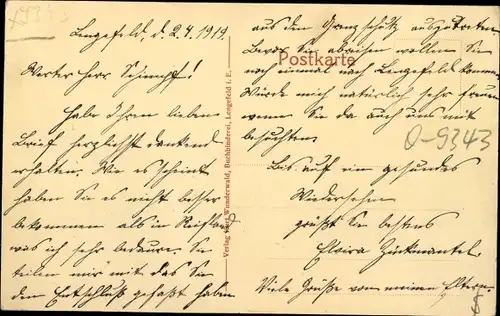 Lengefeld, d. 2.4.1919.
Werter Herr Schimpf!
Habe Ihren lieben
Brief herzlichst dankend
erhalten. Wie es scheint
haben Sie es nicht besser
bekommen als in Reifland
was ich sehr bedaure. Sie
teilen mir mit das Sie
den Entschluß gefaßt haben
aus den Grenzschutz auszutreten
Bevor Sie abreisen wollen Sie
noch einmal nach Lengefeld kommen
Würde mich natürlich sehr freuen
wenn Sie da auch uns mit
besuchten.
Bis auf ein gesundes
Wiedersehn
grüßt Sie bestens
Elvira Zückmantel.
Viele Grüße von meinen Eltern.
Postkarte
Verlag Kurt Wunderwald, Buchbinderei, Lengefeld i. E.
O-9343